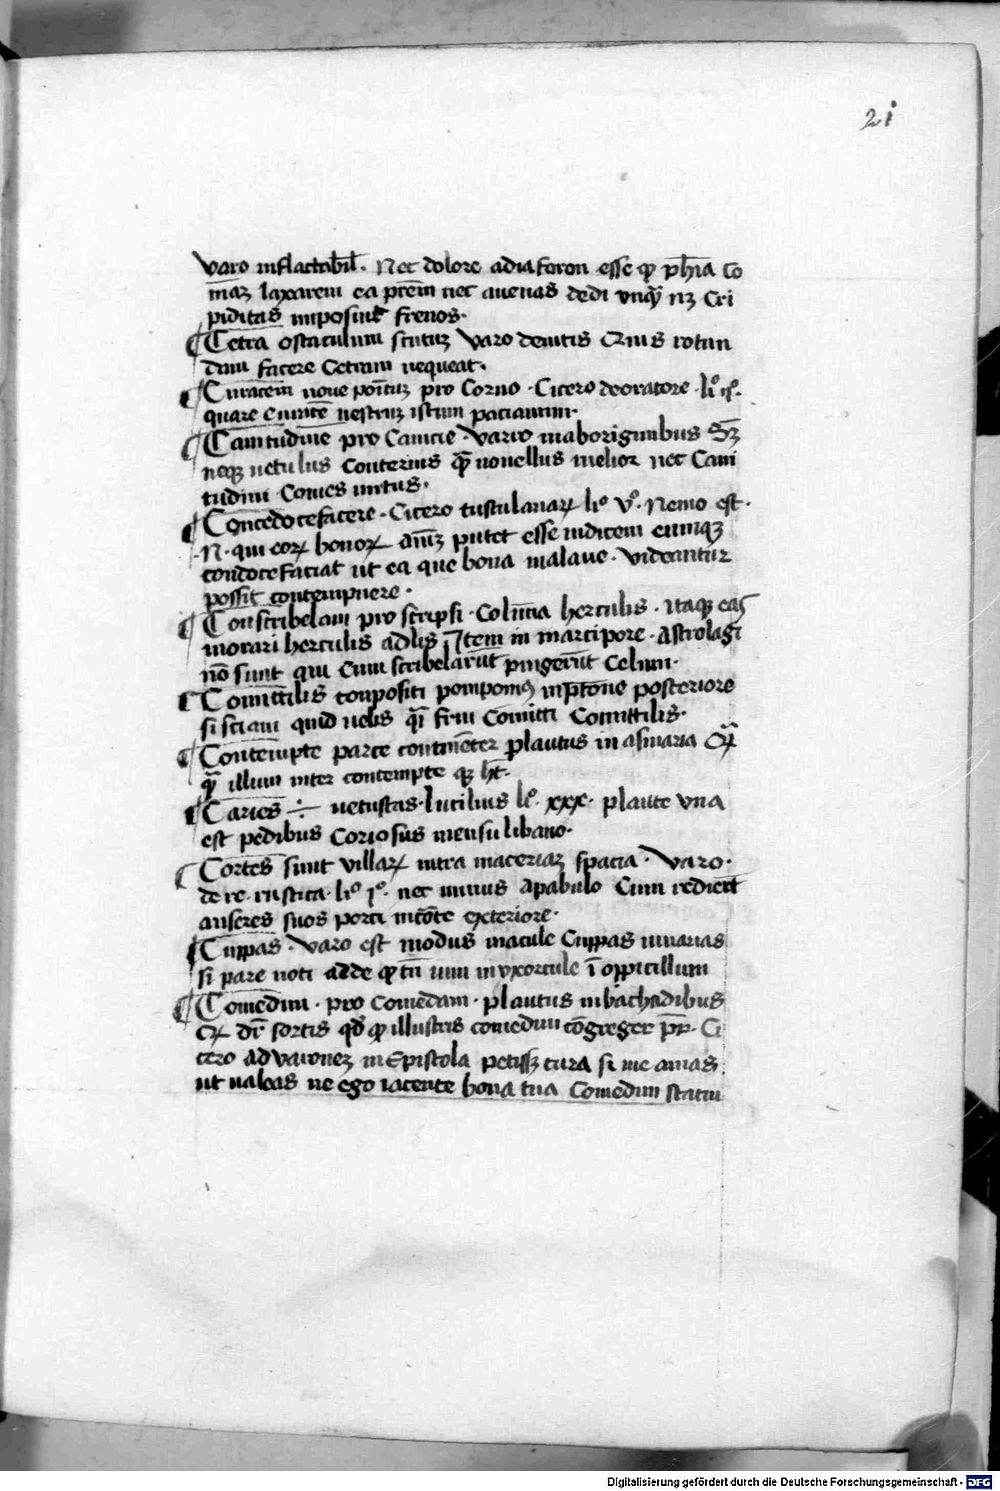 21
varo inflactabil̅. Nec dolore adiaforon esse qͥ ph̅ia co
maꝫ laxarem ea prēm nec auenas dedi vnqͣ nꝫ Cri
piditas imposiut frenos.
¶ Cetra ostaculum scutuꝫ varo demtis Quis rotun
dam facere Cetram nequeat.
¶ Curacem noue pointuꝫ pro Corno. Cicero deoratore. liº ijº.
quare Cuintē nestruꝫ istum paciamur.
¶ Canitudine pro Canicie. varro inaboriginibus Sꝫ
neqꝫ netulus Conterius qͣ nonellus melior nec Cani
tudini Comes uirtus.
¶ Concedocefacere. Cicero tusculanaꝝ liº vº. Nemo est.
.N. qui eoꝝ honoꝝ aīuꝫ putet esse iudicem eumqꝫ
condocefaciat ut ea que bona malaue. videantur
possit contempnere.
¶ Conscribelam pro scripsi. Columia herculis. Itaqꝫ eas
morari herculis adlis Item in marcipore. Astrolagi
nō sunt qui Cum scribelarūt pingerūt Celum.
¶ Comittilis conpositi pomponiꝰ inp̅tone posteriore
si sciam quid nelis qͣi frui Comitti Comittilis.
¶ Contempte parce continēter plautus in asinaria Qꝛ
qͣ illum inter contempte qꝫ h̅t.
¶ Caries ÷ uetustas. lucilius liº. xxx. plaute vna
est pedibus Coriosus mensu libano.
Cortes sunt villaꝝ intra maceriaꝫ spacia. varo.
de re. rustica. liº iº. nec minus apabulo Cum redierīt
anseres suos porci incōte exteriore.
¶ Cuppas. varo est modus macule Cuppas uinarias
si pare uoti adde qͥ tū uini invxorcule ī oppicillum
¶ Comedim. pro Comedam. plautus inbachadibus
Qꝛ dr̅ sortis qd̅ qͥ illustris comedim cōgreger p̅p̅. Ci
cero advaroneꝫ in Epistola petissꝫ cura si me amas
ut ualeas ne ego iacente bona tua Comedim statui
Digitalisierung gefördert durch die Deutsche Forschungsgemeinschaft - DFG